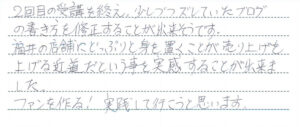 2回目の受講を終え、少しづつズレていたブログ
の書き方を修正することが出来そうです。
福井の店舗にどっぷりと身を置くことが売り上げを
上げる近道だという事を実感することが出来ま
した。
ファンを作る!実践して行こうと思います。